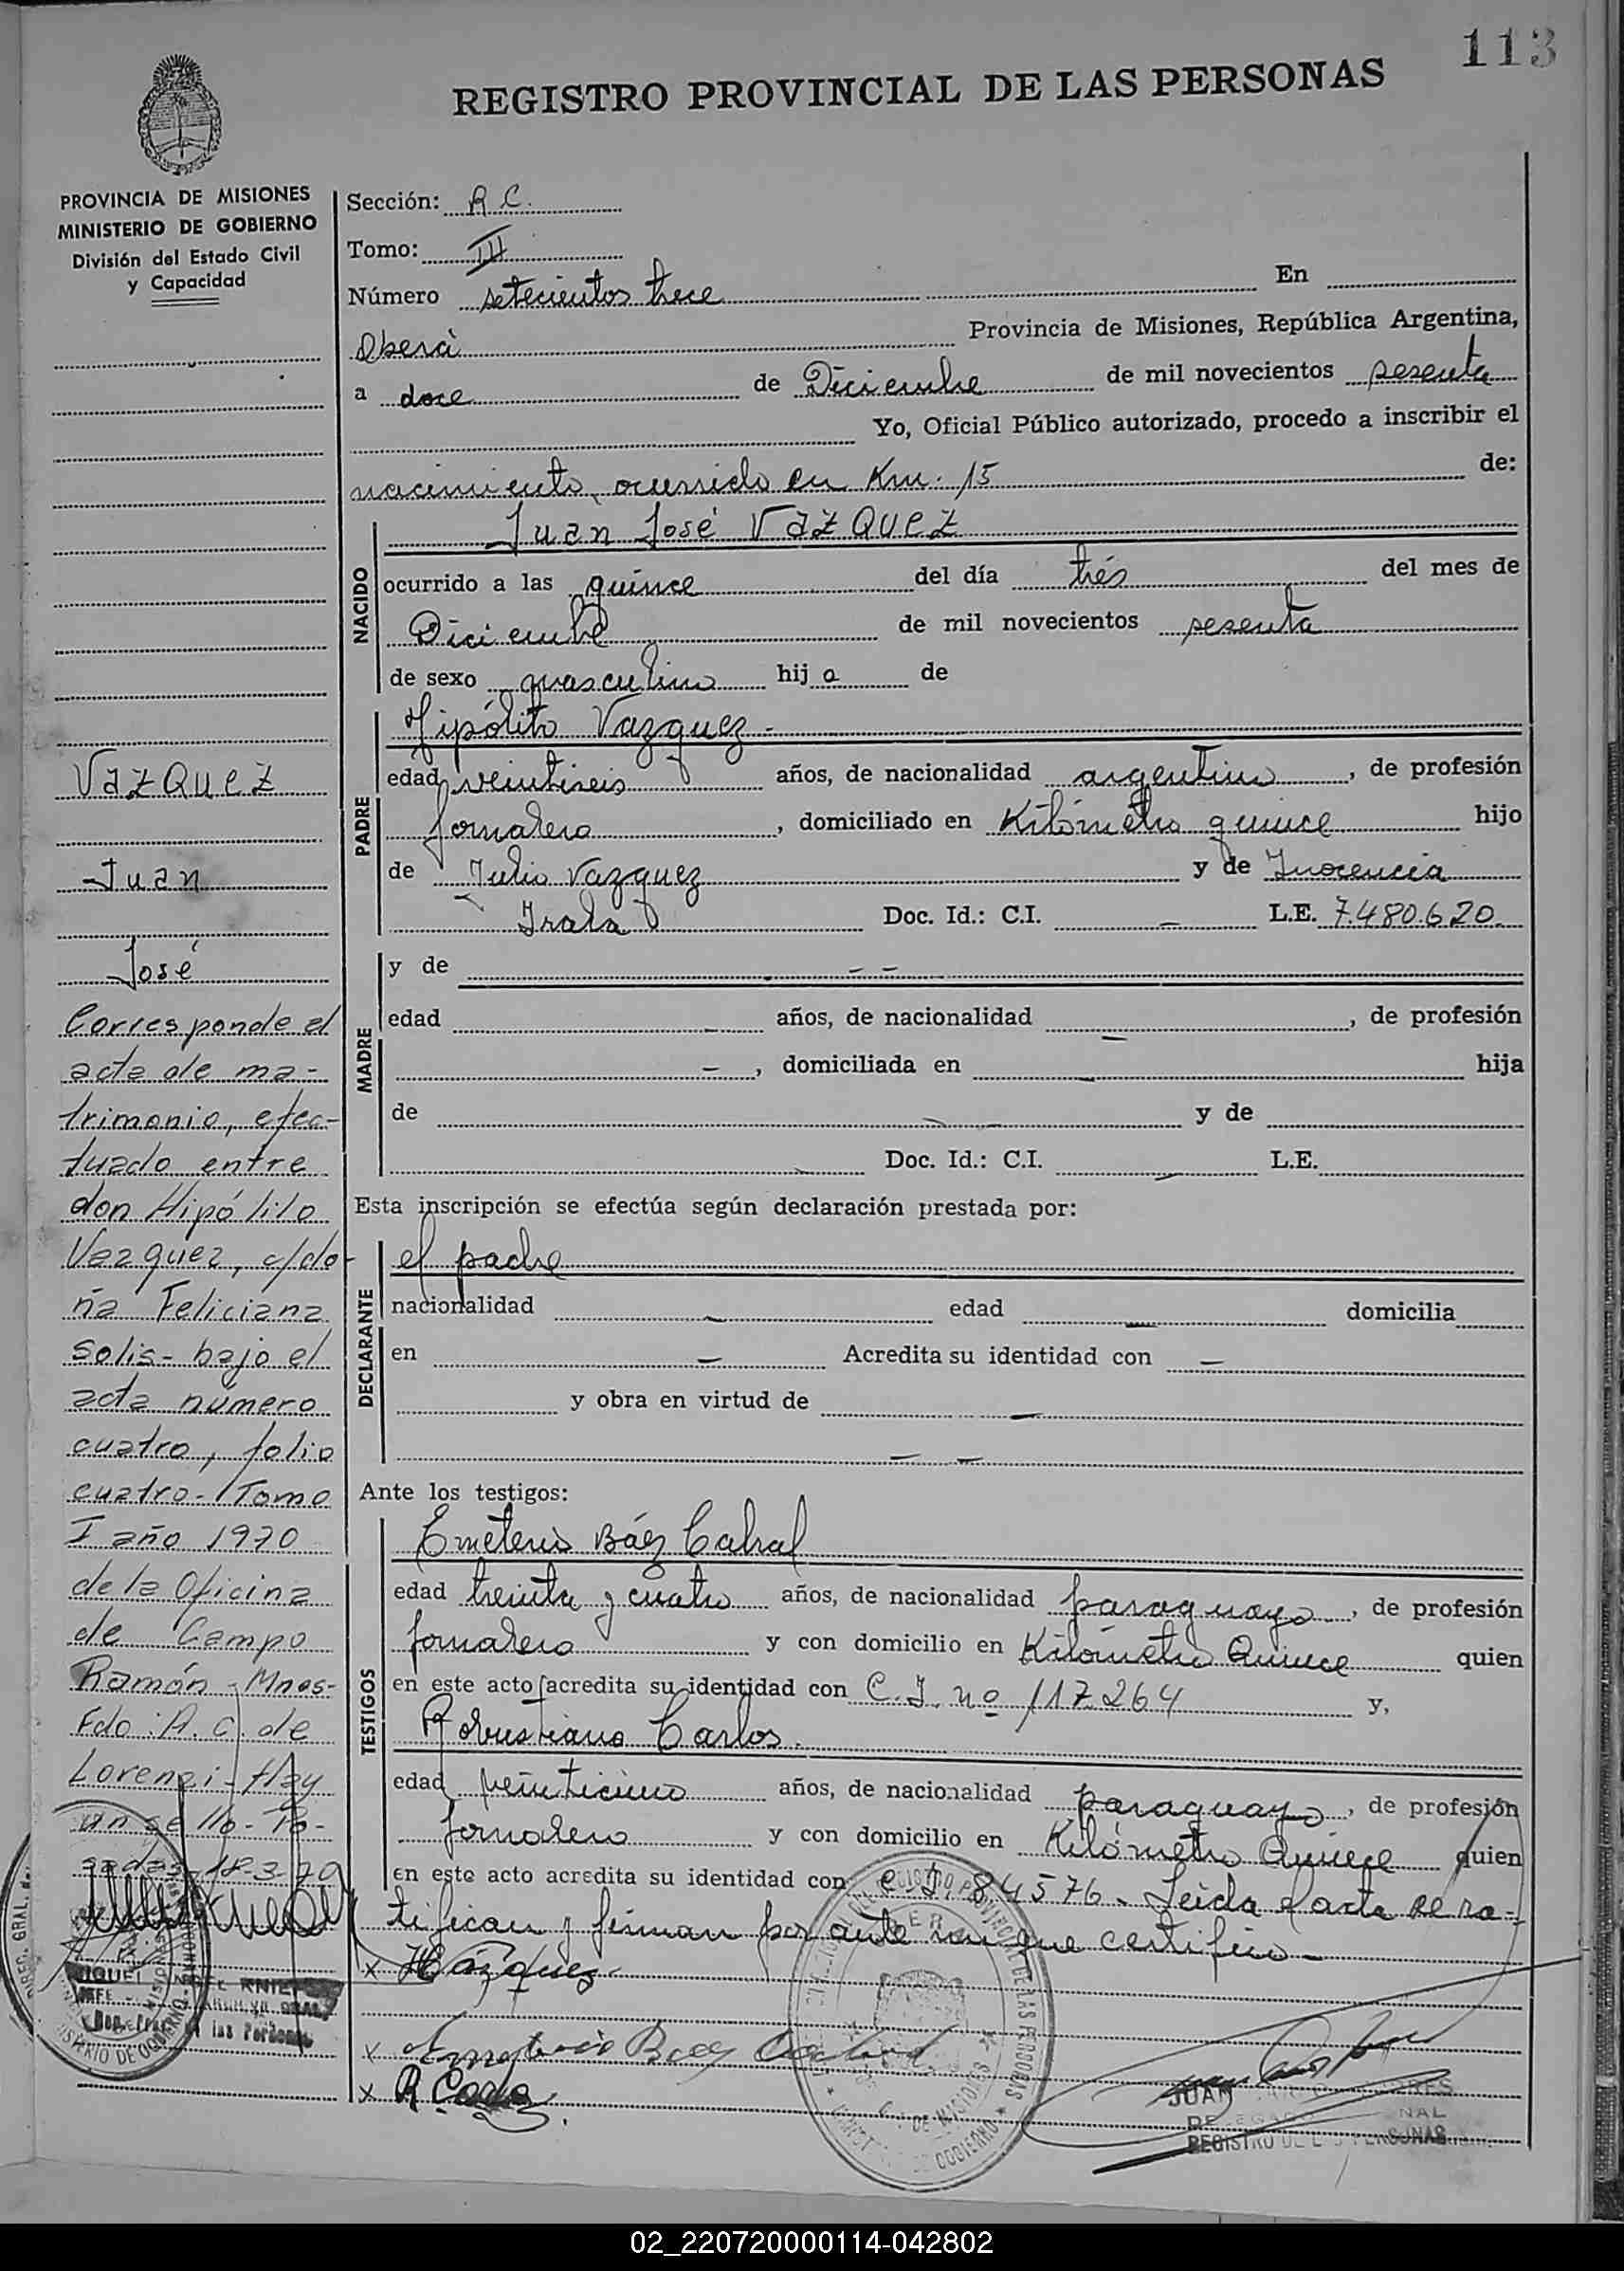 113
REGISTRO PROVINCIAL DE LAS PERSONAS
PROVINCIA DE MISIONES
MINISTERIO DE GOBIERNO
División del Estado Civil
y Capacidad
Sección: R C.
Tomo: III
Número setecientos trece En
Oberà Provincia de Misiones, República Argentina,
a doce de Diciembre de mil novecientos sesenta
Yo, Oficial Público autorizado, procedo a inscribir el
nacimiento, ocurrido en Km. 15 de:
NACIDO
Juan José VAZQUEZ
ocurrido a las quince del día trés del mes de
Diciembre de mil novecientos sesenta
de sexo masculino hij o de
PADRE
Hipólito Vazquez -
edad veintiseis años, de nacionalidad argentino, de profesión
Jornalero, domiciliado en Kilómetro quince hijo
de Julio Vazquez y de Inocencia
Irala Doc. Id.: C.I. - L.E. 7.480.620.
MADRE
y de - -
edad - años, de nacionalidad -, de profesión
-, domiciliada en - hija
de - - y de
- Doc. Id.: C.I. - L.E.
Esta inscripción se efectúa según declaración prestada por:
DECLARANTE
el padre
nacionalidad - edad - domicilia
en - Acredita su identidad con -
y obra en virtud de -
- -
Ante los testigos:
TESTIGOS
Emeterio Báez Cabral
edad treinta y cuatro años, de nacionalidad paraguayo, de profesión
Jornalero y con domicilio en Kilómetro Quince quien
en este acto acredita su identidad con C.I. nº 117264 y,
Robustiano Carlos.
edad veinticinco años, de nacionalidad paraguayo, de profesión
Jornalero y con domicilio en Kilómetro Quince quien
en este acto acredita su identidad con C.I. 84576. Leida el acta se ra-
tifican y firman por ante mi que certifico -
x H Vázquez.
x Báez Cabral
x R
JUAN
REGISTRO DE LAS PERSONAS
VAZQUEZ
Juan
José
Corresponde el
acta de ma-
trimonio, efec-
tuado entre
don Hipólito
Vazquez, c/do-
ña Feliciana
Solis- bajo el
acta número
cuatro, folio
cuatro- Tomo
I año 1970
de la Oficina
de Campo
Ramón - Mnes-
Fdo: A. C. de
Lorenzi - Hay
un sello - Po-
sadas 18-3-70
MINISTERIO DE GOBIERNO
02_220720000114-042802